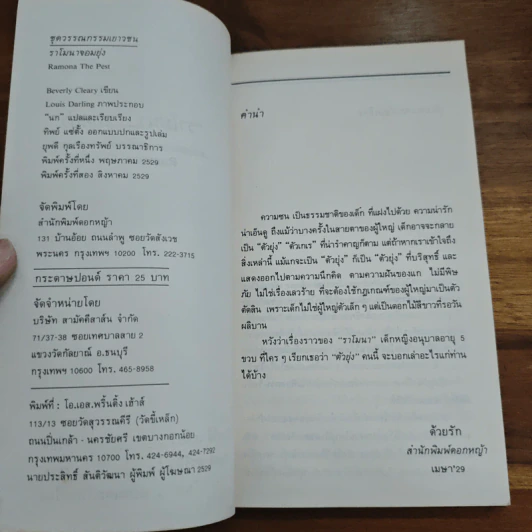 ชุดวรรณกรรมเยาวชน
ราโมนาจอมยุ่ง
Ramona The Pest
Beverly Cleary เขียน
Louis Darling ภาพประกอบ
"แก" แปลและเรียบเรียง
ทิพย์ แซ่ตั้ง ออกแบบปกและรูปเล่ม
ยุพดี กูลเรืองทรัพย์ บรรณาธิการ
พิมพ์ครั้งที่หนึ่ง พฤษภาคม 2529
พิมพ์ครั้งที่สอง สิงหาคม 2529
จัดพิมพ์โดย
สำนักพิมพ์ดอกหญ้า
131 บ้านอ้อย ถนนลำพู ซอยวัดสังเวช
พระนคร กรุงเทพฯ 10200 โทร. 222-3715
กระดาษปอนด์ ราคา 25 บาท
จัดจำหน่ายโดย
บริษัท สามัคคีสาส์น จำกัด
71/37-38 ซอยเทศบาลสาย 2
แขวงวัดกัลยาณ์ อ.ธนบุรี
กรุงเทพฯ 10600 โทร. 465-8958
พิมพ์ที่ : โอ.เอส.พริ้นติ้ง เฮ้าส์
113/13 ซอยวัดสุวรรณคีรี (วัดขี้เหล็ก)
ถนนปิ่นเกล้า - นครชัยศรี เขตบางกอกน้อย
กรุงเทพมหานคร 10700 โทร. 424-6944, 424-7292
นายประสิทธิ์ สันติวัฒนา ผู้พิมพ์ ผู้โฆษณา 2529
คำนำ
ความซน เป็นธรรมชาติของเด็ก ที่แฝงไปด้วย ความน่ารัก
น่าเอ็นดู ถึงแม้ว่าบางครั้งในสายตาของผู้ใหญ่ เด็กอาจจะกลาย
เป็น "ตัวยุ่ง" "ตัวเกเร" ที่น่ารำคาญก็ตาม แต่ถ้าหากเราเข้าใจถึง
สิ่งเหล่านี้ แม้แกจะเป็น "ตัวยุ่ง" ก็เป็น "ตัวยุ่ง" ที่บริสุทธิ์ และ
แสดงออกไปตามความนึกคิด ตามความฝันของแก ไม่มีพิษ
ภัย ไม่ใช่เรื่องเลวร้าย ที่จะต้องใช้กฎเกณฑ์ของผู้ใหญ่มาเป็นตัว
ตัดสิน เพราะเด็กไม่ใช่ผู้ใหญ่ตัวเล็ก ๆ แต่เป็นดอกไม้สีขาวที่รอวัน
ผลิบาน
หวังว่าเรื่องราวของ "ราโมนา" เด็กหญิงอนุบาลอายุ 5
ขวบ ที่ใคร ๆ เรียกเธอว่า "ตัวยุ่ง" คนนี้ จะบอกเล่าอะไรแก่ท่าน
ได้บ้าง
ด้วยรัก
สำนักพิมพ์ดอกหญ้า
เมษา'29